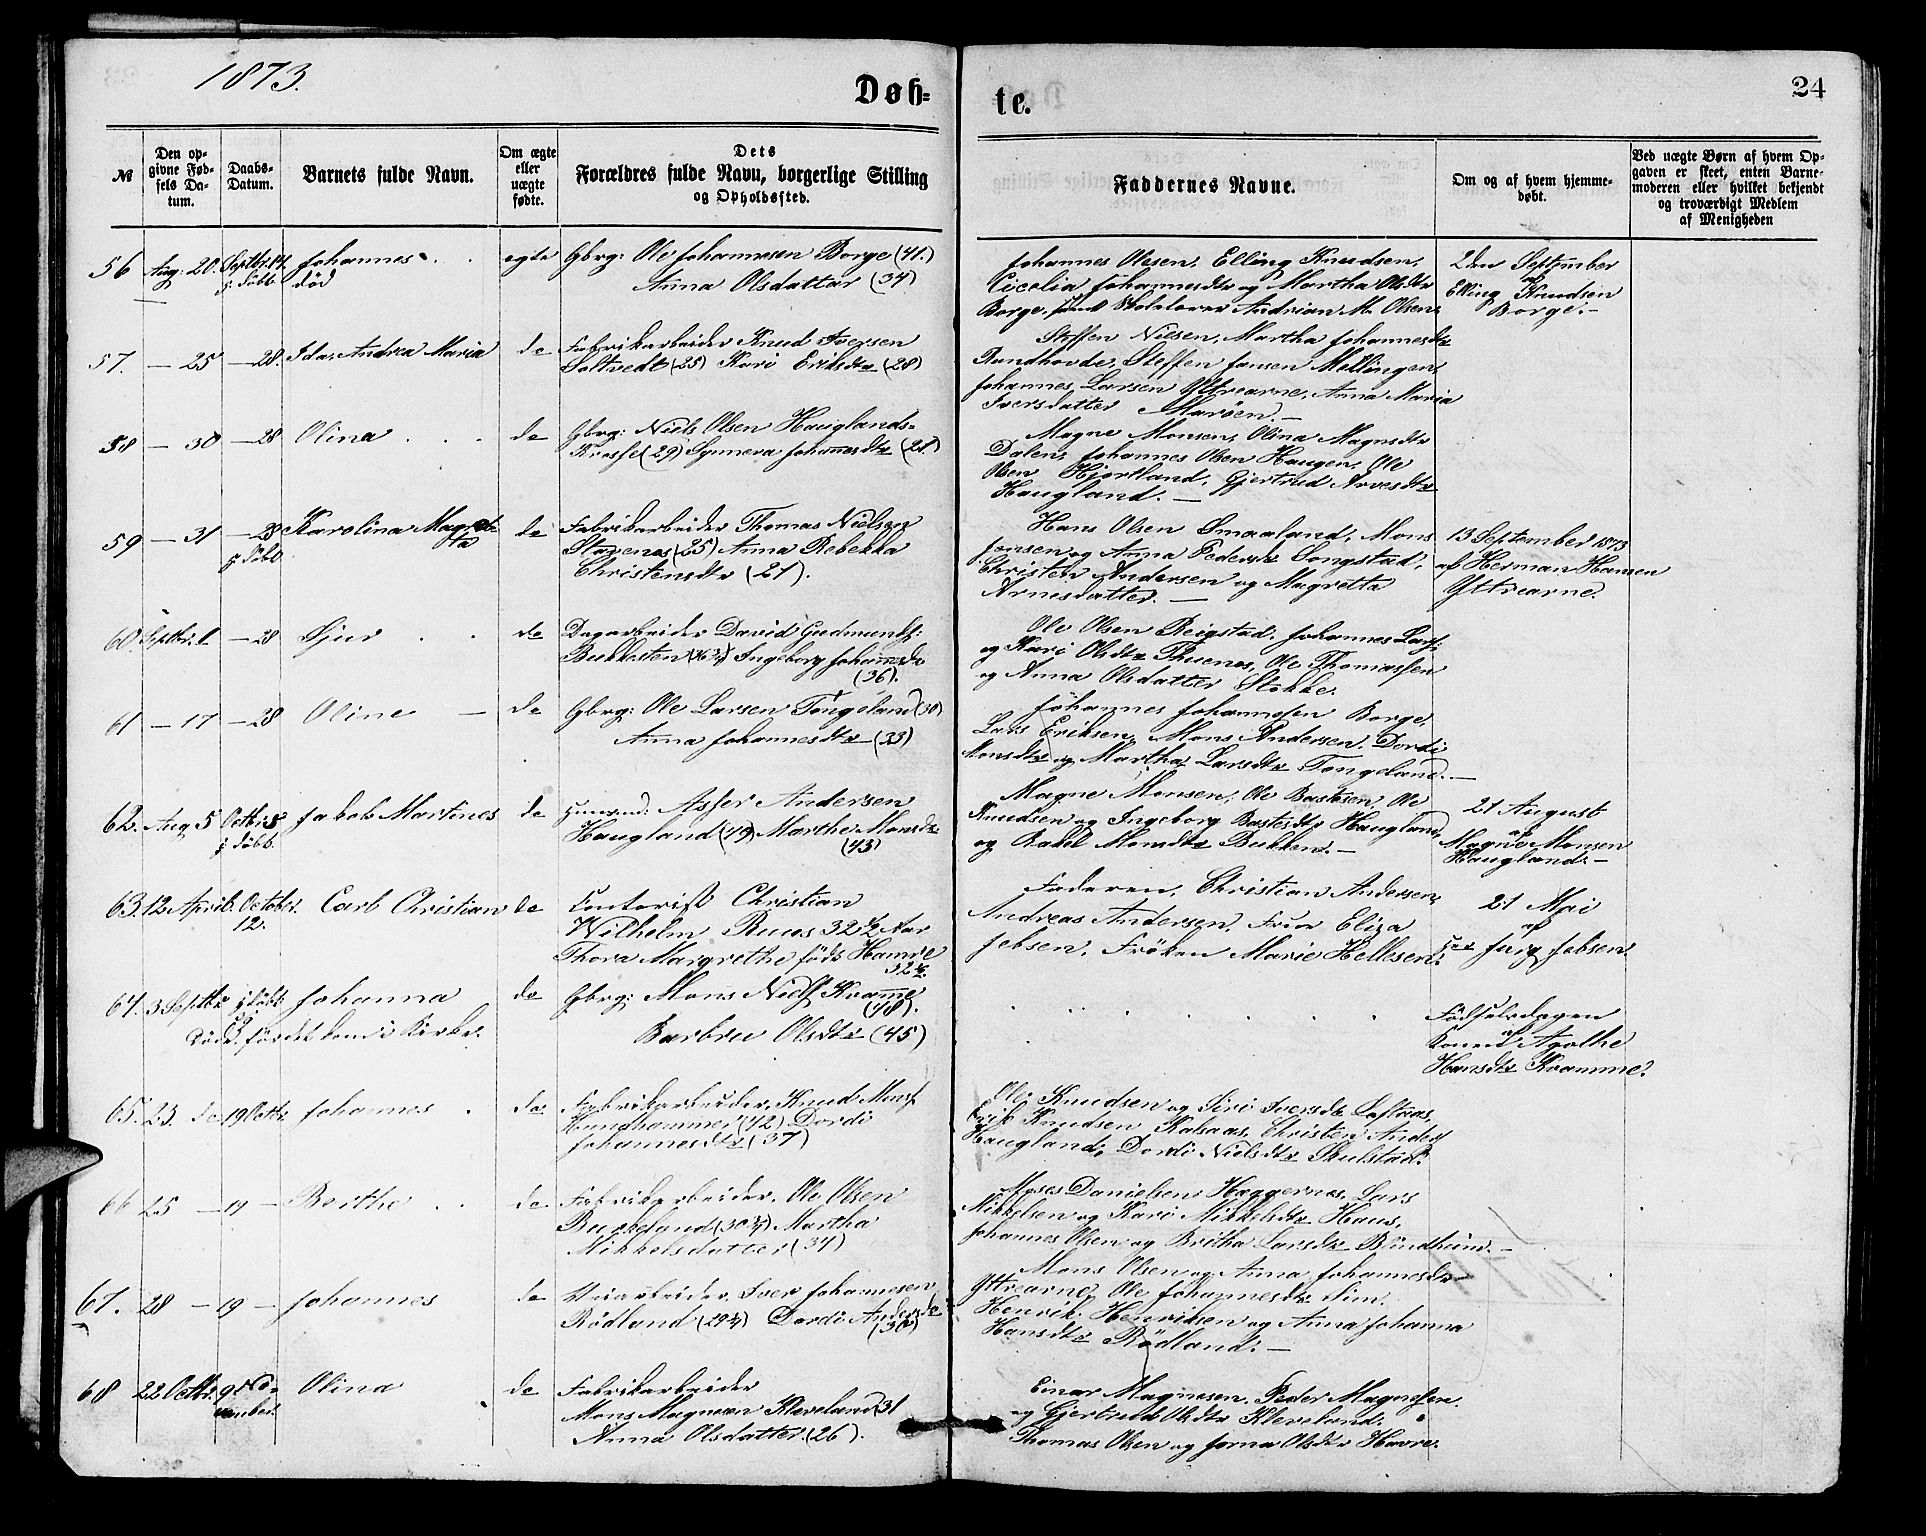 1873.
Døb=
te.
24
№
Den op-
givne Fød-
sels Da-
tum.
Daabs-
Datum.
Barnets fulde Navn.
Om ægte
eller
uægte
fødte.
Dets
Forældres fulde Navn, borgerlige Stilling
og Opholdssted.
Faddernes Navne.
Om og af hvem hjemme-
døbt.
Ved uægte Børn af hvem Op-
gaven er skeet, enten Barne-
moderen eller hvilket bekjendt
og troværdigt Medlem
af Menigheden
56 Aug: 20. Septbr. 14. Johannes egte Gbrg: Ole Johannesen Borge (41.)
hj: döbt. död Anna Olsdatter (34)
Johannes Olsen, Elling Knudsen,
Cicelia Johannesdtr og Martha Olsdtr
Borge, samt Skolelærer Andrian M. Olsen.
2den September
af
Elling Knudsen
Borge.-
57. - 25 - 28. Ida Andrea Maria de Fabrikarbeider Knud Iversen
Saltvedt (25) Kari Eriksdtr (28)
Steffen Nilsen, Martha Johannesdtr
Rundhovde, Steffen Jansen Mellingen,
Johannes Larsen Yttrearne, Anna Maria
Iversdatter Maröen.-
58 - 30 - 28 Olina de Gbrg: Niels Olsen Hauglands-
Krosse (29) Synneva Johannesdtr (28.)
Magne Monsen, Olina Magnsdtr
Dalen, Johannes Olsen Haugen, Ole
Olsen Hjortland, Gjertrud Arvesdtr
Haugland.-
59 - 31 - 28 Karolina Magret- de Fabrikarbeider Thomas Nielsen
hj: döbt ta Stavenes (25) Anna Rebekka
Christensdtr (21).
Hans Olsen Smaaland, Mons
Jansen og Anna Pedersdtr Songstad,
Christen Andersen og Magretta
Arnesdatter.-
13 September 1873
af Herman Hansen
Yttrearne.
60. Septbr. 1 - 28 Sjur de Dagarbeider David Gudmunds:
Bukkesten (36¾) Ingeborg Johannesdtr
(36).
Ole Olsen Reigstad, Johannes Lars:
og Kari Olsdtr Thuenes, Ole Thomassen
og Anna Olsdatter Stokke.
61 - 17 - 28 Oline - de Gbrg: Ole Larsen Tongeland (30)
Anna Johannesdtr (33)
Johannes Johannesen Borge,
Lars Eriksen, Mons Andersen, Dordi
Monsdtr og Martha Larsdtr Tongeland.-
62. Aug 5 Octbr. 5 Jakob Martines de Huusmd: Asser Andersen
hj: döbt. Haugland (49) Marthe Monsdtr
(43)
Magne Monsen, Ole Bastesen, Ole
Knudsen og Ingeborg Bastesdtr Haugland,
og Rakel Monsdtr Bukken.-
21 August
af
Magne Monsen
Haugland.-
63. 12 April. October Carl Christian de Contorist Christian
12. Wilhelm Ruus 32½ Aar
Thora Margrethe föds Hamre
32¼
Faderen, Christian Andersen,
Andreas Andersen, Frue Eliza
Jebsen, Fröken Marie Hellesen.
21 Mai
af
Jürg Jebsen.
64. 3 Septbr hj: döbt Johanna de Gbrg: Mons Niels Kvamme
(48).
Döde för det kom i Kirke. Barbru Olsdtr (45)
Födselsdagen
af
Konen Agathe
Hansdtr Kvamme.
65. 23. de 19 Octbr Johannes de Fabrikarbeider, Knud Mons:
Rundhammer (42) Dordi
Johannesdtr (37)
Ole Knudsen og Siri Iversdtr Loftaas,
Erik Knudsen Kalsaas, Christen Anders:
Haugland, Dordi Nielsdtr Skulstad.
66 25 - 19 - Berthe de Fabrikarbeider, Ole Olsen
(30¾) Martha
Mikkelsdatter (34)
Moses Danielsen Heggernes, Lars
Mikkelsen og Kari Mikkelsdtr Haus,
Johannes Olsen og Britha Larsdtr Bundheim.-
67. 28 - 19 - Johannes de Veiarbeider, Iver Johannesen
Rödland (29¾) Dordi Andersdtr
(30)
Mons Olsen og Anna Johannesdtr
Yttrearne, Ole Johannesdtr Sim.
Henrik Henriksen og Anna Johanna
Hansdtr Rödland.-
68 22 Octbr. 9de No- Olina de Fabrikarbeider
vember. Mons Magnesen Kleveland 31
Anna Olsdatter (26).
Einar Magnesen, Peder Magnesen
og Gjertrud Olsdtr Kleveland.
Thomas Olsen og Jorna Olsdtr Havre.